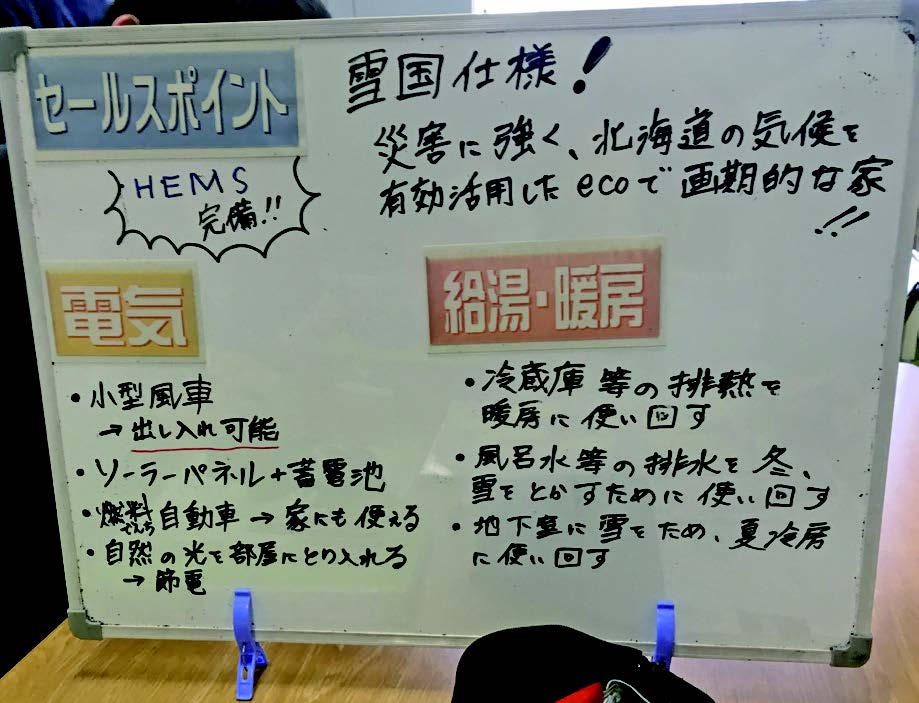 セールスポイント
雪国仕様!
災害に強く、北海道の気候を
有効活用したecoで画期的な家
!!
HEMS
完備!!
電気
・小型風車
→出し入れ可能
・ソーラーパネル+蓄電池
・燃料でんち自動車→家にも使える
・自然の光を部屋にとり入れる
→節電
給湯・暖房
・冷蔵庫等の排熱を
暖房に使い回す
・風呂水等の排水を冬、
雪をとかすために使い回す
・地下室に雪をため、夏冷房
に使い回す